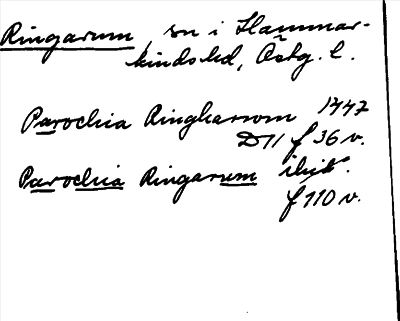 Ringarum, sn i Hammar-
kinds hd, Östg. l.
Parochia Ringharom 1447
D 11 f 36 v.
Parochia Ringarum ibid.
f 110 v.